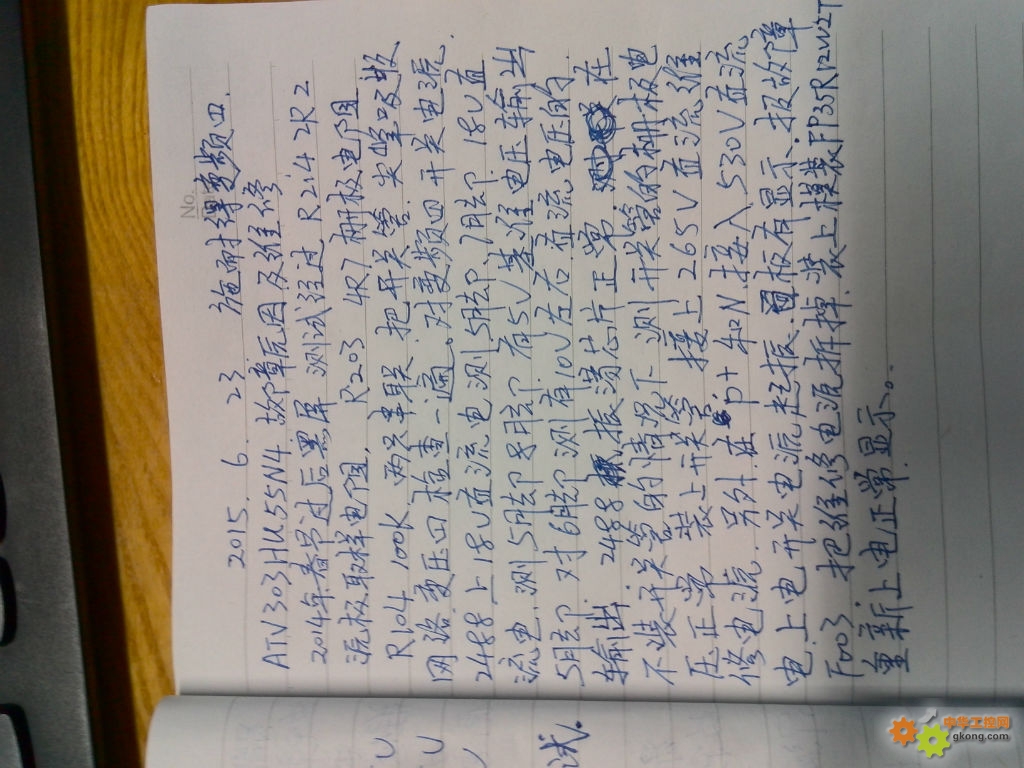 No.
2015. 6. 23 施耐德变频四.
ATV303HU55N4 故障原因及维修
2014年春节过后黑屏 测试经过 R214 2R2
流极取样电阻, R203 4R7 栅极电阻
R104 100K 两只串联 把开关管 尖峰吸收
网络 变压四检查一遍。对变频四开关电流.
2488上18V直流电测5脚 7脚 18V直
流电.测5脚 8脚 有5V基准电压输出
5脚 对6脚 测有10V左右直流电压的
输出 2488 振荡芯片正常. 在
不装开关管的情况下 测开关管的栅极电
压正常 装上开关管 接上265V直流维
修电流. 另外在 P+ 和N.接入530V直流
电.上电开关电流起振. 面板有显示.报故障
F003 把维修电源拆掉 装上模装FP35R12W2T
重新上电正常显示。
试.
中华工控网
gkong.com